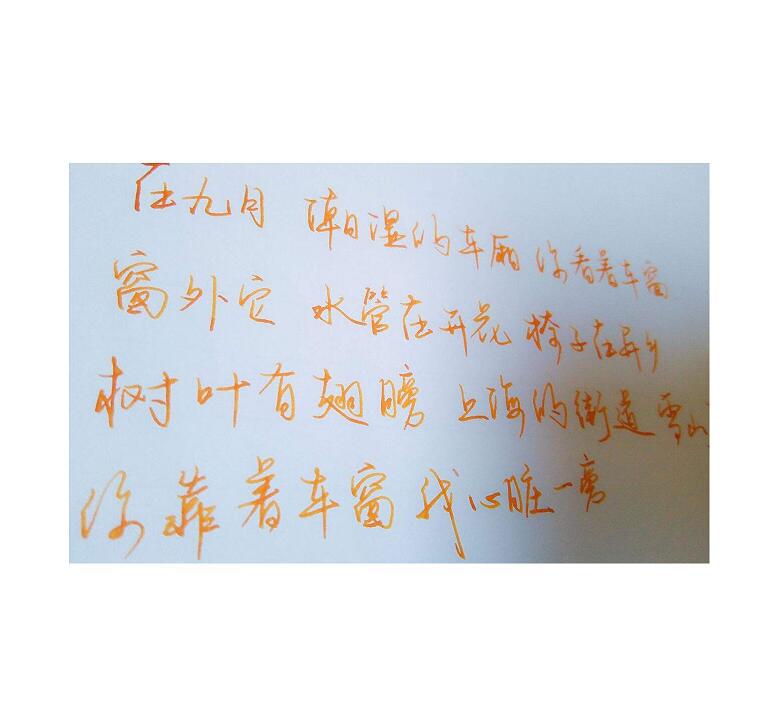 在九月 潮湿的车厢 你看着车窗
窗外它 水管在开花 椅子在异乡
树叶有翅膀 上海的街道 雪山
你靠着车窗 我心脏一旁